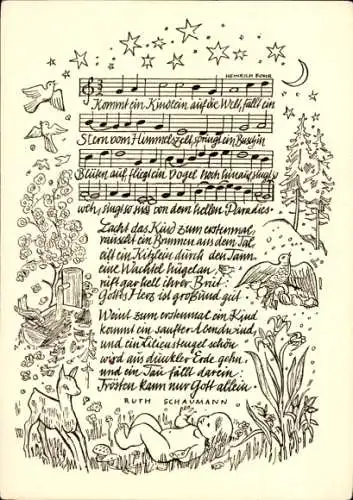 HEINRICH ROHR
Kommt ein Kindlein auf die Welt, fällt ein
Stern vom Himmelszelt, springt ein Busch in
Blüten auf, fliegt ein Vogel hoch hinauf, singt
weh, singt so süß von dem hellen Paradies.
Lacht das Kind zum erstenmal,
rauscht ein Brunnen aus dem Tal
ein Kitzlein durch den Tann
eine Wachtel hügelan,
ruft gar hell ihrer Brut:
Gotts Herz ist groß und gut
Weint zum erstenmal ein Kind
kommt ein sanfter Abendwind,
und ein Lilienstengel schön
wird aus dunkler Erde gehn,
und ein Tau fällt darein:
Trösten kann nur Gott allein.
RUTH SCHAUMANN